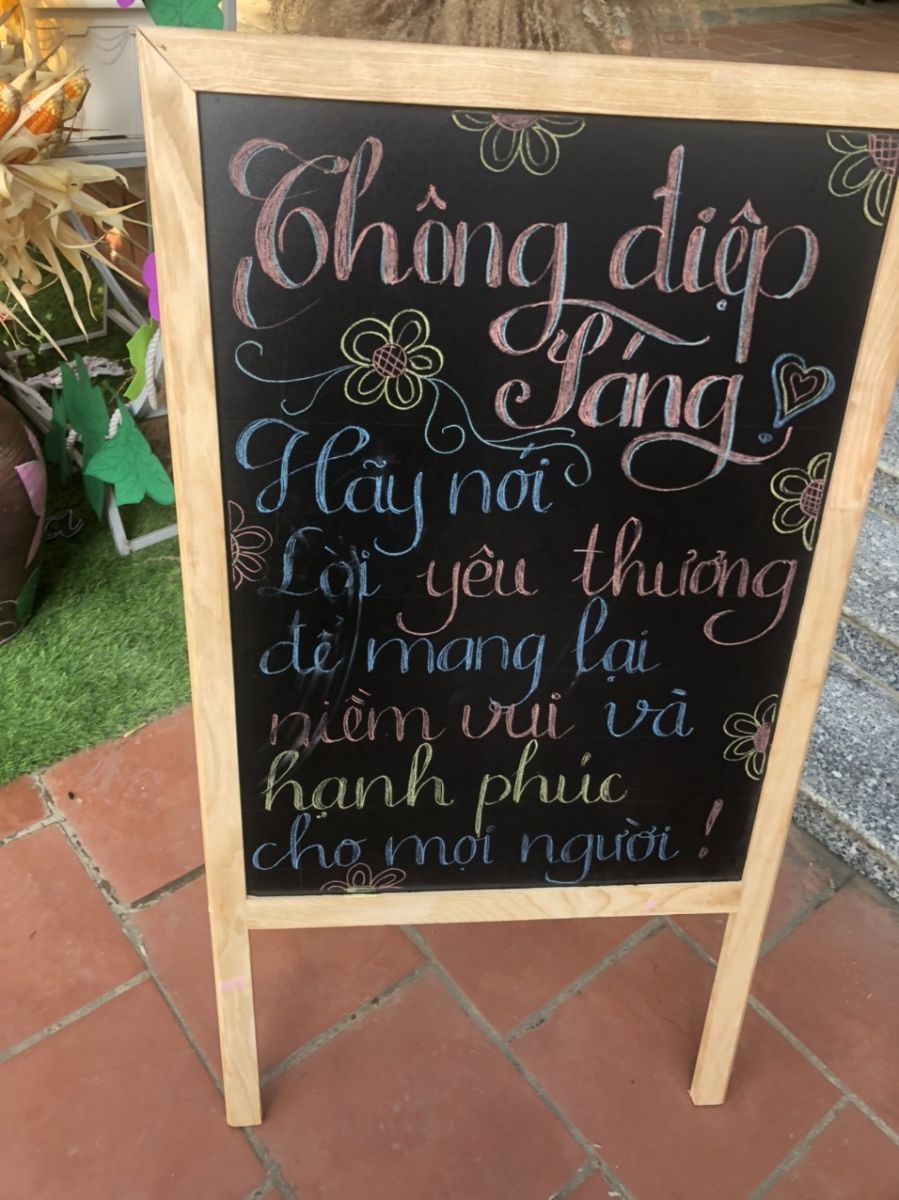 Thông điệp
Sáng!
Hãy nói
Lời yêu thương
để mang lại
niềm vui và
hạnh phúc
cho mọi người!